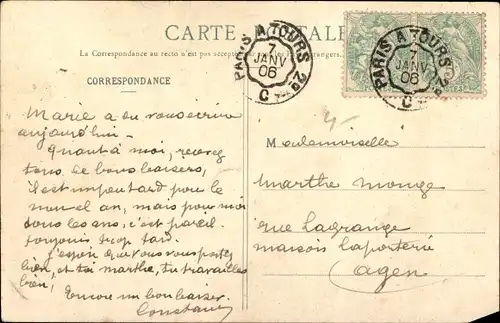 CARTE POSTALE
La Correspondance au recto n'est pas acceptée
CORRESPONDANCE
PARIS A TOURS 2°
7
JANV
06
C
PARIS A TOURS 2°
7
JANV
06
C
Marie a du vous écrire
aujourd'hui.
Quant à moi, recevez
tous de bons baisers,
il est un peu tard pour le
nouvel an, mais pour moi
tous les ans, c'est pareil.
toujours trop tard.
J'espère que vous vous portez
bien, et toi marthe, tu travailles
bien,
Encore un bon baiser.
Constant
Mademoiselle
Marthe Monge
rue Lagrange
maison Laporterie
Agen